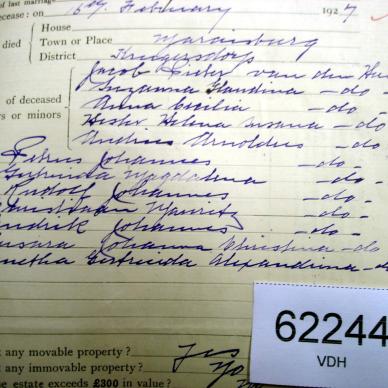 of last marriage
cease : on 16th February 1927
House
died Town or Place Maraisburg
District Krugersdorp
of deceased
rs or minors
Jacob Pieter van den
Susanna Claudina - do -
Anna Cecilia - do -
Hester Helena Susana - do -
Andries Arnoldus - do -
Petrus Johannes - do -
Gertruida Magdalena - do -
Rudolf Johannes - do -
Christiaan Mauritz - do -
endrik Johannes - do -
Johanna Christina - do
netha Gertruida Alexandrina - do
t any movable property? Yes
t any immovable property? No
e estate exceeds £300 in value?
62244
VDH